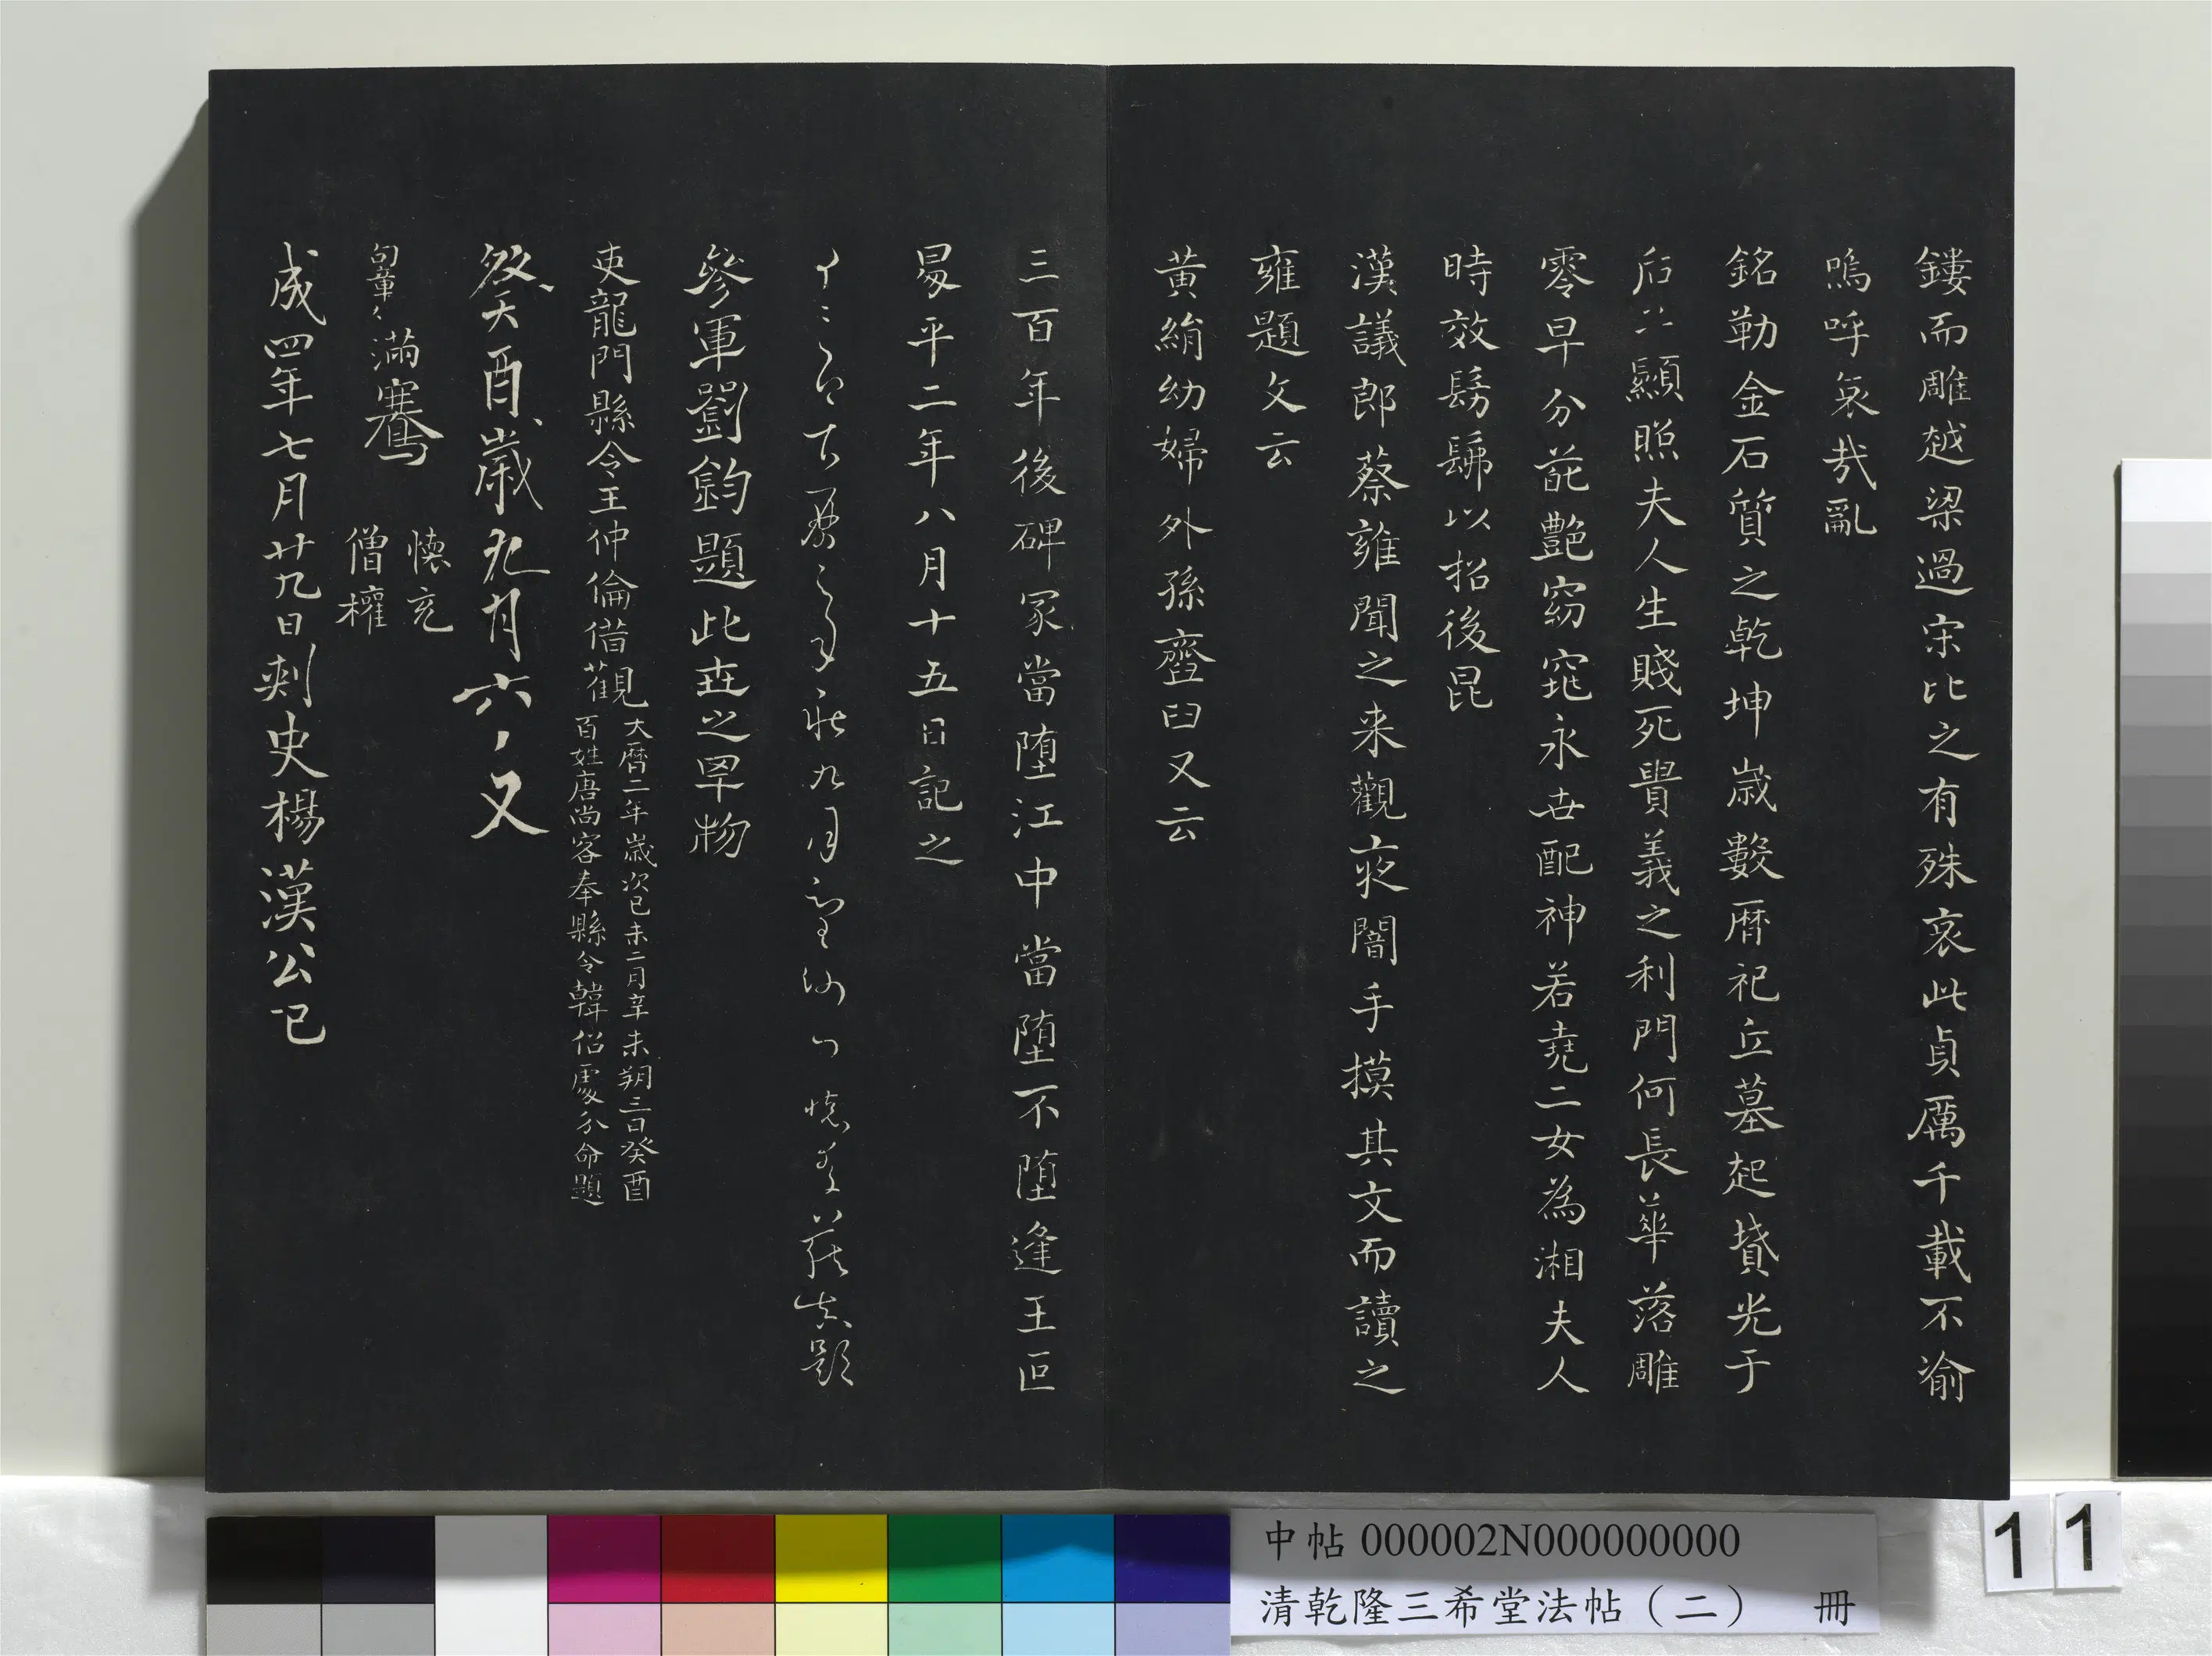 鏤而雕越梁過宋比之有殊哀此貞厲千載不渝
嗚呼哀哉亂
銘勒金石質之乾坤歲數曆祀丘墓起墳光于
后土顯照夫人生賤死貴義之利門何長華落雕
零早分葩艷窈窕永世配神若堯二女為湘夫人
時效髣髴以招後昆
漢議郎蔡雍聞之来觀夜闇手摸其文而讀之
雍題文云
黃絹幼婦外孫齏臼又云
三百年後碑冢當墮江中當墮不墮逢王叵
昇平二年八月十五日記之
九月
題
參軍劉鈞題此世之罕物
吏龍門縣令王仲倫借觀
大曆二年歲次己未二月辛未朔三日癸酉
百姓唐尚客奉縣令韓侣處分命題
癸酉歲九月六日又
句章令滿騫
懷充
僧權
成四年七月廿九日刺史楊漢公記
中帖 000002N000000000
清乾隆三希堂法帖（二） 冊
1 1